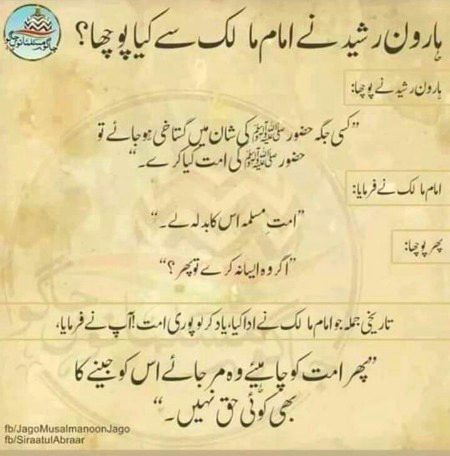 ہارون رشید نے امام مالک سے کیا پوچھا؟
ہارون رشید نے پوچھا:
”کسی جگہ حضور ﷺ کی شان میں گستاخی ہو جائے تو
حضور ﷺ کی امت کیا کرے۔“
امام مالک نے فرمایا:
”امت مسلمہ اس کا بدلہ لے۔“
پھر پوچھا:
”اگر وہ ایسا نہ کرے تو پھر؟“
تاریخی جملہ جو امام مالک نے ادا کیا، یاد کر لو پوری امت! آپ نے فرمایا،
”پھر امت کو چاہیئے وہ مر جائے اس کو جینے کا
بھی کوئی حق نہیں۔“
fb/JagoMusalmanoonJago
fb/SiraatulAbraar